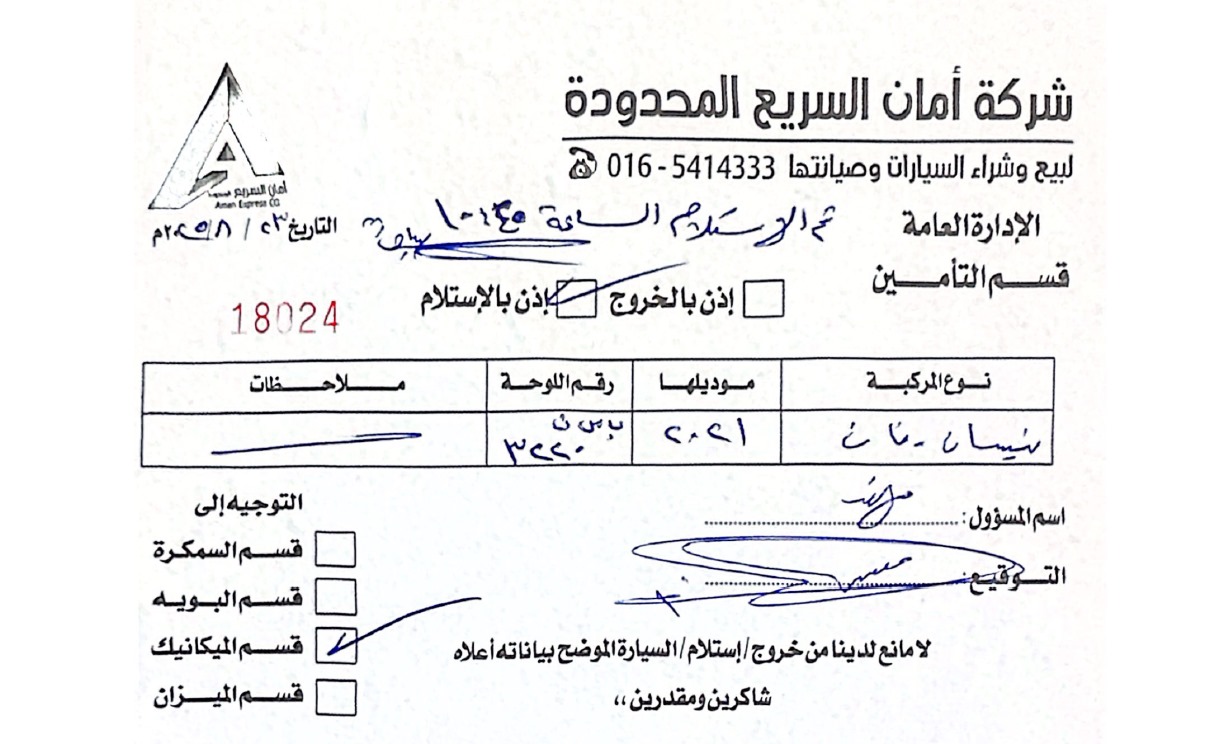 شركة أمان السريع المحدودة
لبيع وشراء السيارات وصيانتها 016-5414333
أمان السريع
Aman Express CO
الإدارة العامة
تم الإستلام الساعة ١٠:٤٥
التاريخ ٢٣ / ٨ / ٢٠٢٥م
قسم التأمين
إذن بالخروج
إذن بالإستلام
18024
نوع المركبة موديلها رقم اللوحة ملاحظات
نيسان - فان ٢٠٢١ ب س ن ٣٢٢٠
اسم المسؤول:
التوقيع:
لا مانع لدينا من خروج/إستلام/السيارة الموضح بياناته أعلاه
شاكرين ومقدرين ،،
التوجيه إلى
قسم السمكرة
قسم البويه
قسم الميكانيك
قسم الميزان